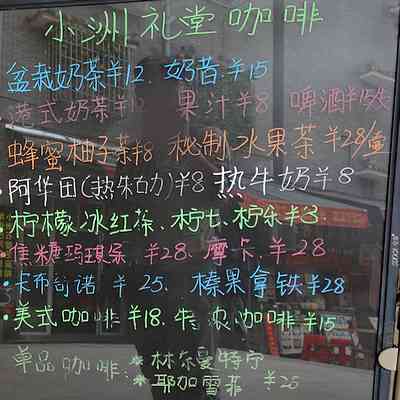 小洲礼堂咖啡
盆栽奶茶¥12、奶昔¥15
港式奶茶¥12 果汁¥8 啤酒¥15
蜂蜜柚子茶¥8 秘制水果茶¥28/壶
·阿华田(热朱古力)¥8 热牛奶¥8
·柠檬冰红茶、柠七、柠乐¥13
·焦糖玛琪朵 ¥28、摩卡¥28
·卡布奇诺 ¥25. 榛果拿铁¥28
·美式咖啡¥18、特浓咖啡¥15
单品咖啡:*林尔曼特宁
*耶加雪菲 ¥25